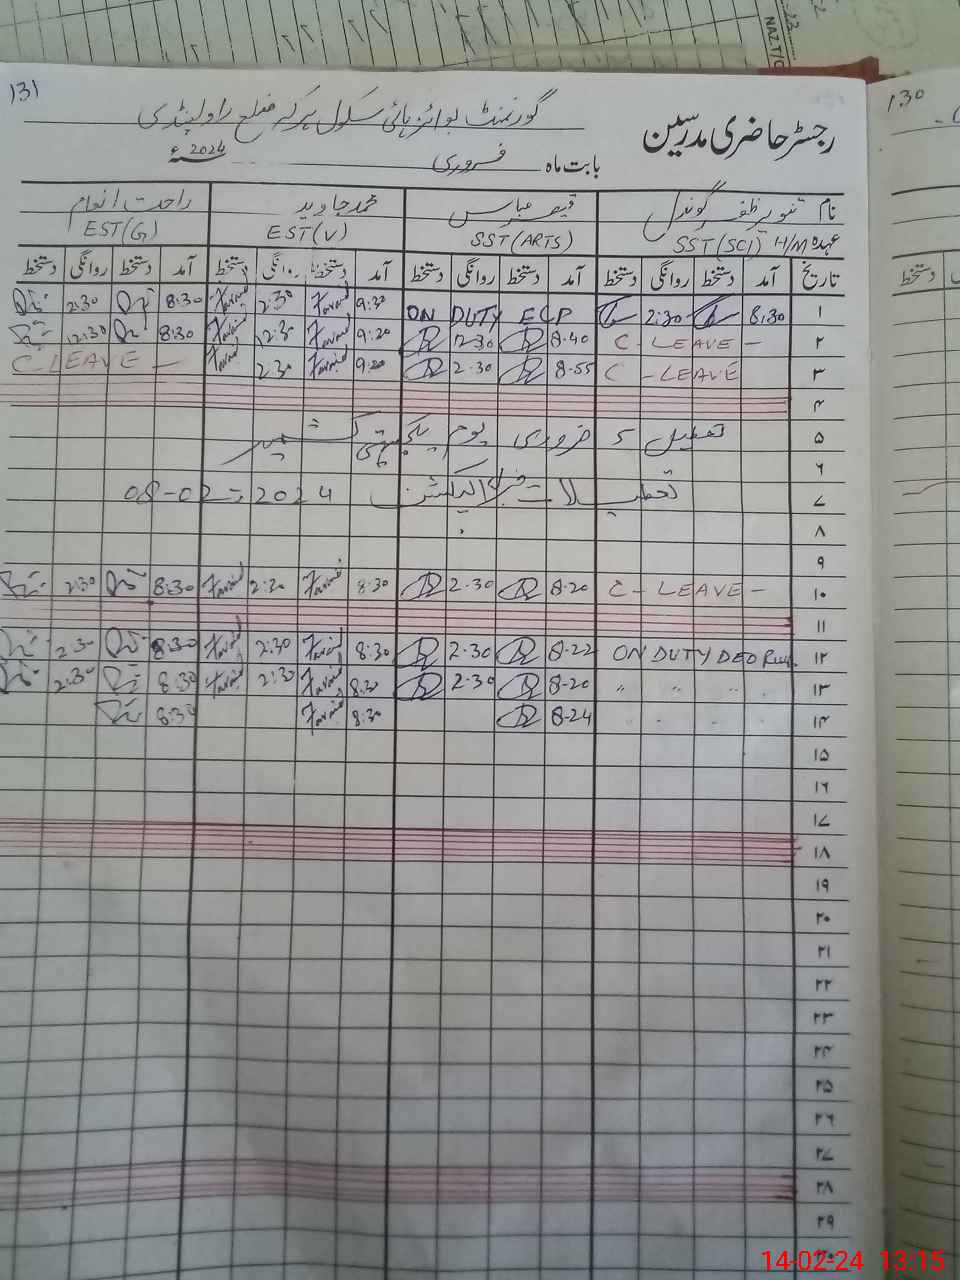 131
گورنمنٹ بوائز ہائی سکول ہرکہ ضلع راولپنڈی
رجسٹر حاضری مدرسین
بابت ماہ فروری 2024ء
نام تنویر ظفر گوندل قیصر عباس محمد جاوید راحت انعام
عہدہ SST(SCI) H/M SST(ARTS) EST(V) EST(G)
تاریخ آمد دستخط روانگی دستخط آمد دستخط روانگی دستخط آمد دستخط روانگی دستخط آمد دستخط روانگی دستخط
۱ 8:30 2:30 ON DUTY ECP 9:30 2:30 8:30 2:30
۲ C-LEAVE - 8-40 12-30 9:30 12:30 8:30 12:30
۳ C-LEAVE 8-55 2.30 9:30 2:30 C-LEAVE -
۴
۵ تعطیل 5 فروری یوم یکجہتی کشمیر
۶
۷ تعطیلات برائے الیکشن 2024 08-02
۸
۹
۱۰ C-LEAVE - 8-20 2.30 8:30 2:30 8:30 2:30
۱۱
۱۲ ON DUTY DEO 8-22 2.30 8:30 2:30 8:30 2:30
۱۳ " " " " 8-20 2.30 8:30 2:30 8:30 2:30
۱۴ 8-24 8:30 8:30
۱۵
۱۶
۱۷
۱۸
۱۹
۲۰
۲۱
۲۲
۲۳
۲۴
۲۵
۲۶
۲۷
۲۸
۲۹
۳۰
130
دستخط
NAZ.T/C
14-02-24 13:15